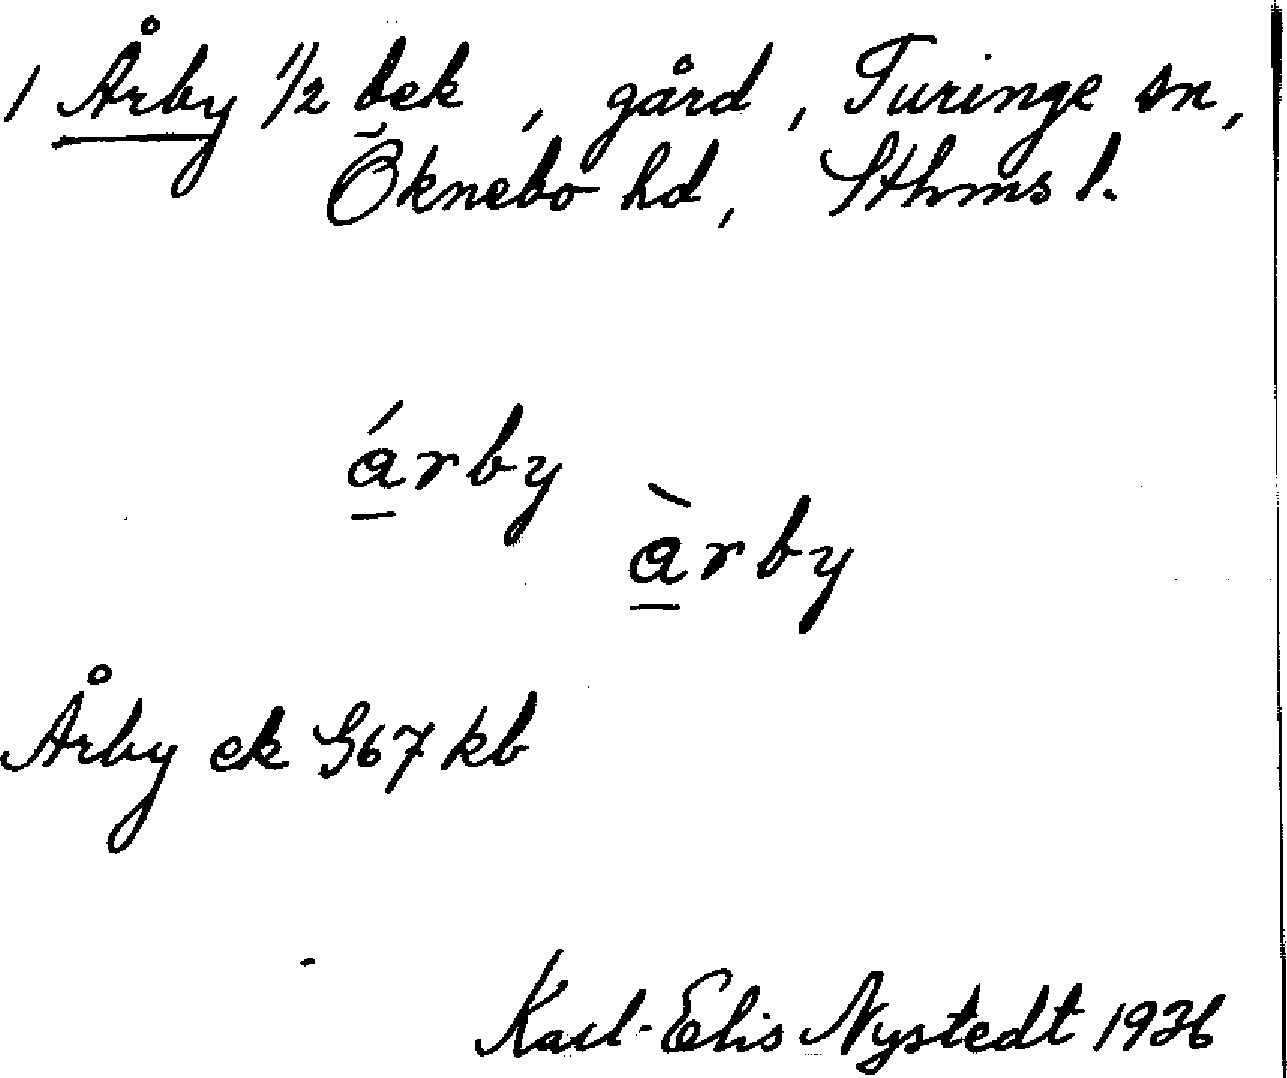 1 Årby 1/2 bek, gård, Turinge sn,
Öknebo hd, Sthms l.
árby
àrby
Årby ek G67 kb
Karl-Elis Nystedt 1936